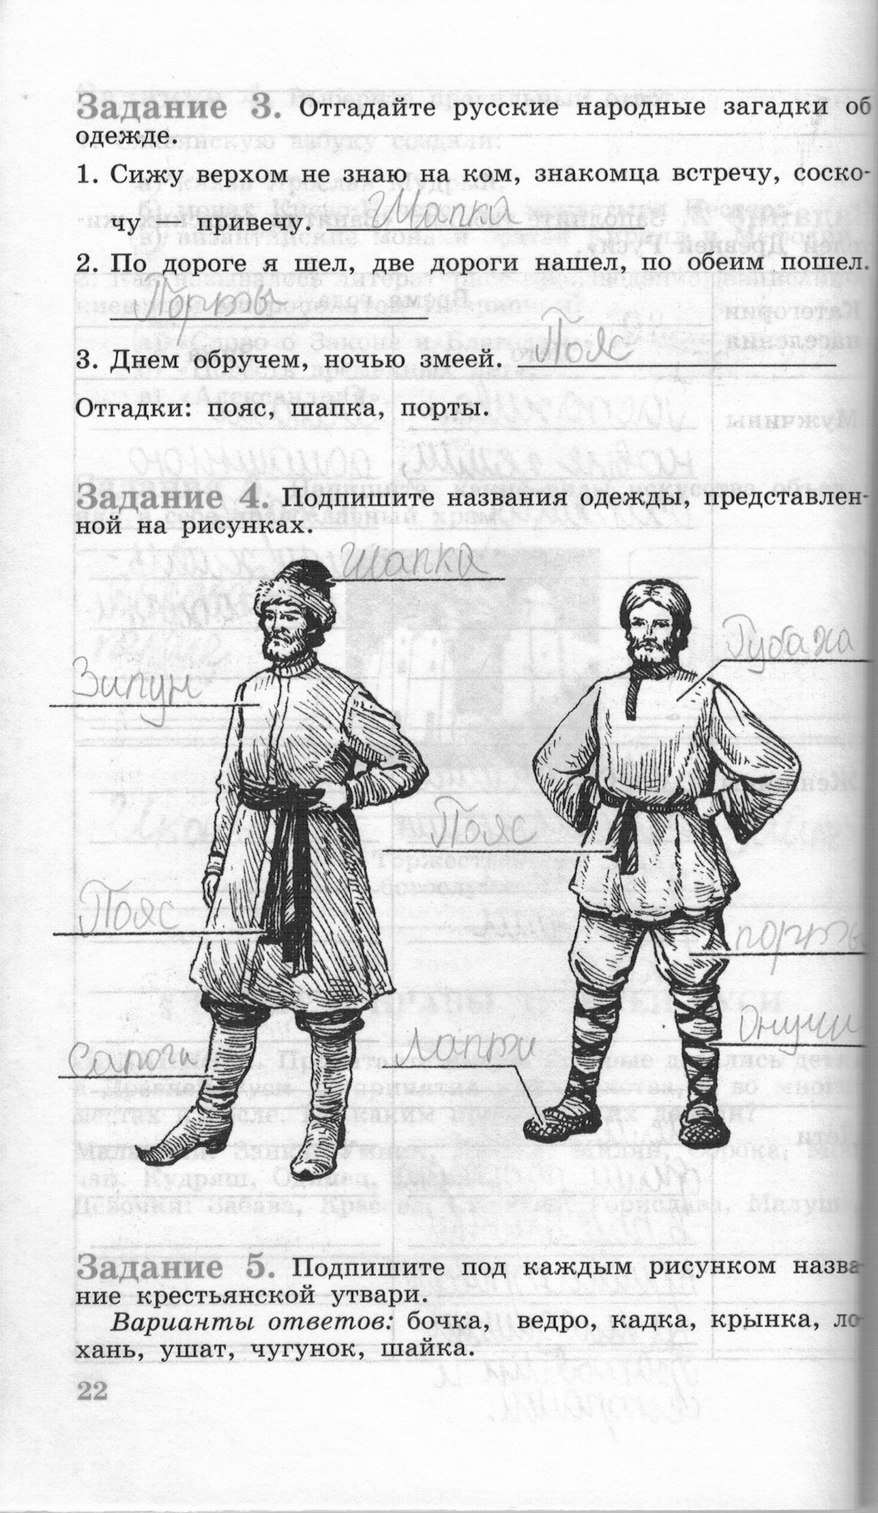 Задание 3. Отгадайте русские народные загадки об
одежде.
1. Сижу верхом не знаю на ком, знакомца встречу, соско-
чу — привечу. Шапка
2. По дороге я шел, две дороги нашел, по обеим пошел.
Порты
3. Днем обручем, ночью змеей. Пояс
Отгадки: пояс, шапка, порты.
Задание 4. Подпишите названия одежды, представлен-
ной на рисунках.
Шапка
Рубаха
Зипун
Пояс
Пояс
порты
Онучи
Сапоги
Лапти
Задание 5. Подпишите под каждым рисунком назва-
ние крестьянской утвари.
Варианты ответов: бочка, ведро, кадка, крынка, ло-
хань, ушат, чугунок, шайка.
22